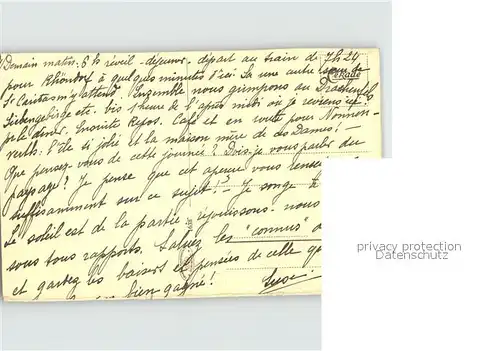 Demain matin: 6 h réveil - déjeuner - départ au train de 7h24
pour Rhöndorf à quelques minutes d'ici. Là une autre soeur de
St Caritas m'y attend. Ensemble nous grimpons au Drachenfels
Siebengebirge etc. bis 1 heure de l'après midi où je reviens ici
pr le diner. Ensuite Repos. Café et en route pour Nonnen-
werth: l'île si jolie et la maison mère de ces Dames! -
Que pensez-vous de cette journée? Dois-je vous parler du
paysage? Je pense que cet aperçu vous renseigne
suffisamment sur ce sujet! - Je songe à
Le soleil est de la partie, réjouissons-nous
sous tous rapports. Saluez les "connus"
et gardez les baisers et pensées de celle
bien gagné!
privacy protection
Datenschutz